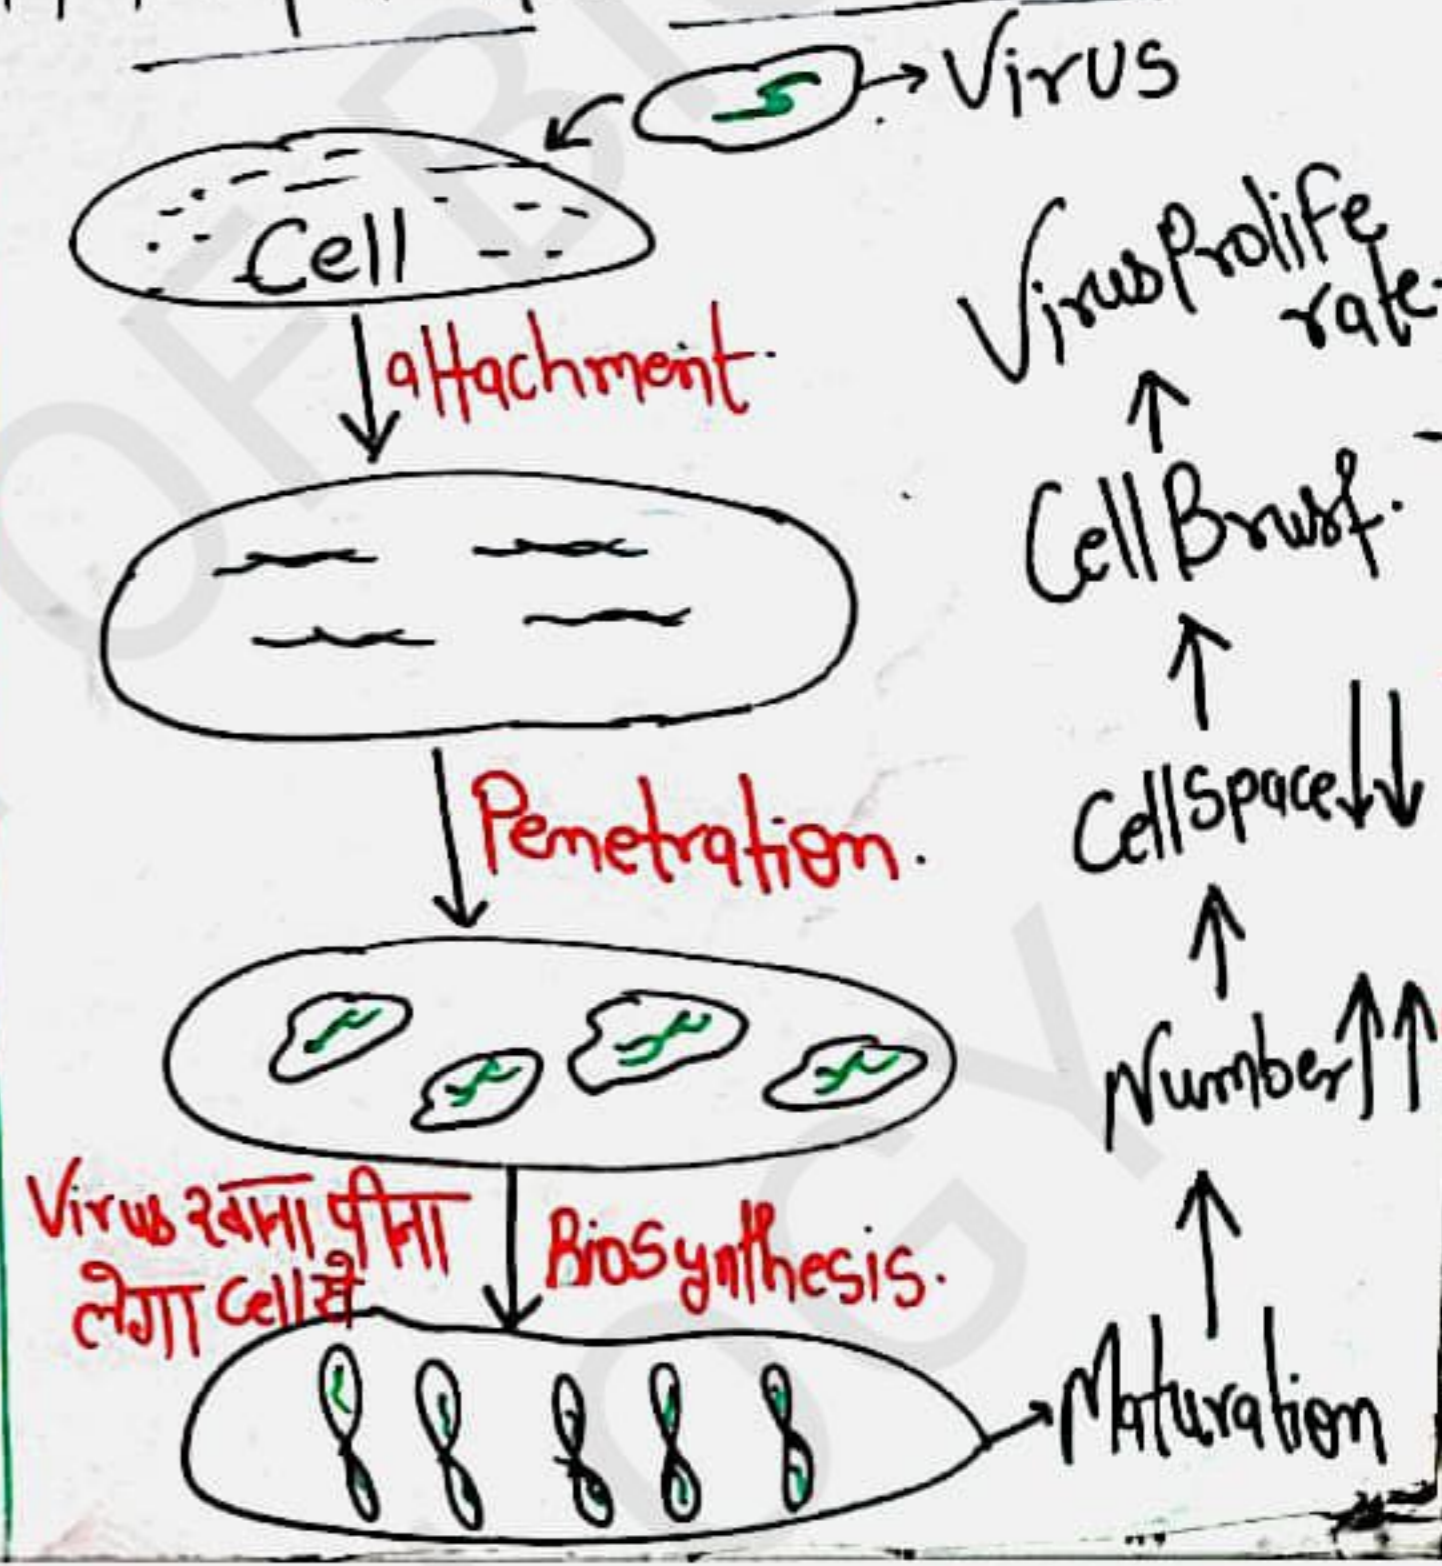 Virus
Cell
attachment.
Penetration.
Virus खाना पीना
लेगा Cell से
Biosynthesis.
Maturation
Number↑↑
Cell Space↓↓
Cell Brust.
Virus Prolife
rate.